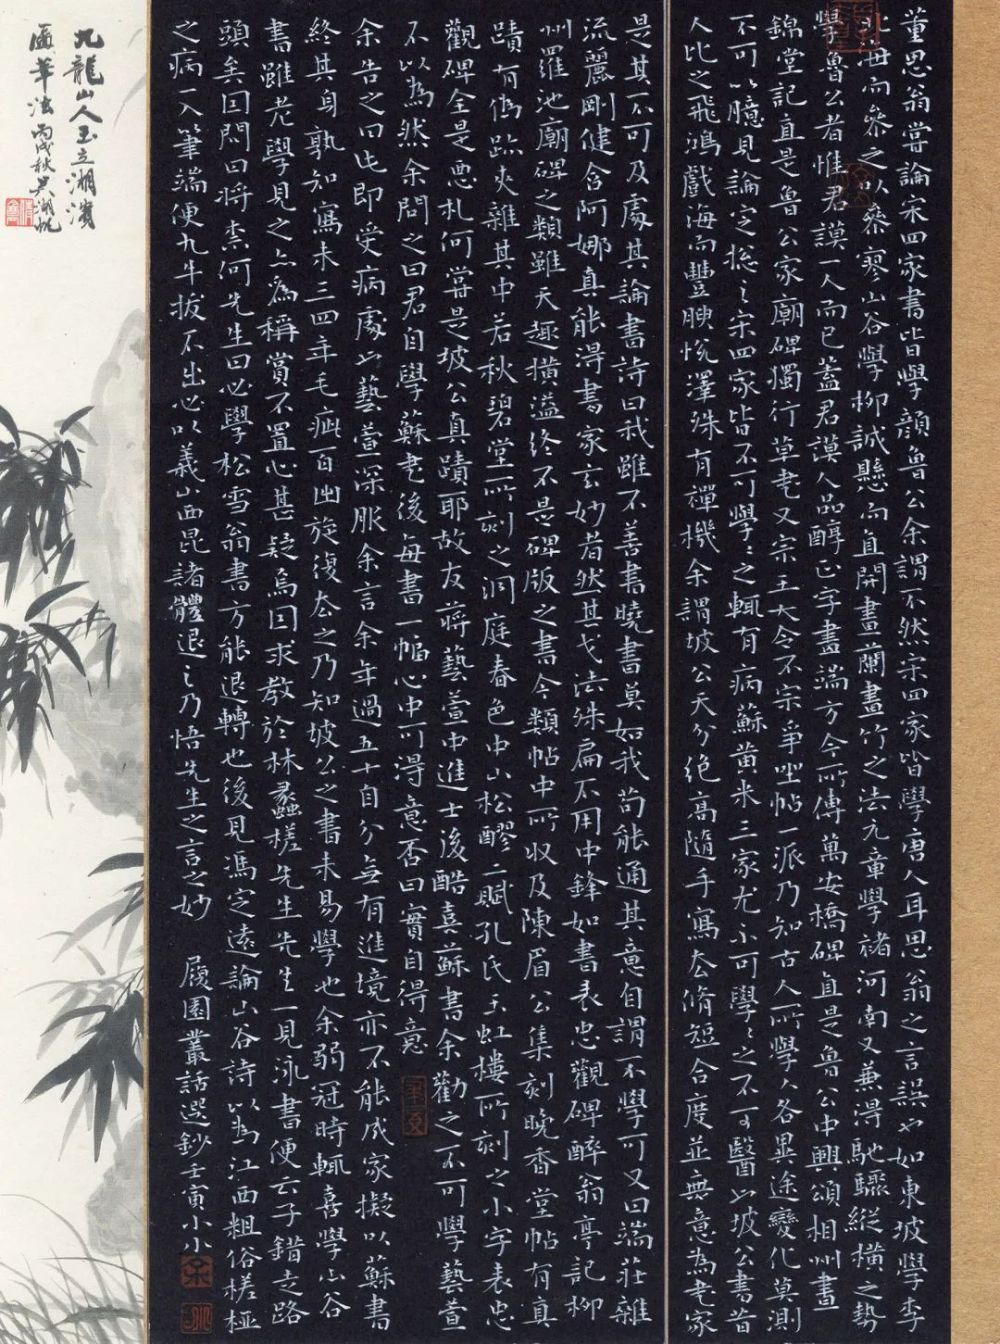 董思翁嘗論宋四家書皆學顏魯公余謂不然宋四家皆學唐人耳思翁之言誤也如東坡學李
北海而參之以參寥山谷學柳誠懸而直開畫蘭畫竹之法元章學褚河南又兼得馳驟縱橫之勢
學魯公者惟君謨一人而已蓋君謨人品醇正字畫端方今所傳萬安橋碑直是魯公中興頌相州畫
錦堂記直是魯公家廟碑獨行草書又宗王大令不宗爭坐帖一派乃知古人所學人各異途變化莫測
不可以臆見論定總之宋四家皆不可學學之輒有病蘇黃米三家尤不可學學之不可醫也坡公書昔
人比之飛鴻戲海而豐腴悅澤殊有禪機余謂坡公天分絕高隨手寫去脩短合度並無意為書家
是其不可及處其論書詩曰我雖不善書曉書莫如我苟能通其意自謂不學可又曰端莊雜
流麗剛健含阿娜真能得書家玄妙者然其戈法殊扁不用中鋒如書表忠觀碑醉翁亭記柳
州羅池廟碑之類雖天趣橫溢終不是碑版之書今類帖中所收及陳眉公集刻晚香堂帖有真
蹟有偽跡夾雜其中若秋碧堂所刻之洞庭春色中山松醪二賦孔氏玉虹樓所刻之小字表忠
觀碑全是惡札何嘗是坡公真蹟耶故友蔣藝萱中進士後酷喜蘇書余勸之不可學藝萱
不以為然余問之曰君自學蘇書後每書一幅心中可得意否曰實自得意
余告之曰此即受病處也藝萱深服余言余年過五十自分無有進境亦不能成家擬以蘇書
終其身孰知寫未三四年毛疵百出旋復去之乃知坡公之書未易學也余弱冠時輒喜學山谷
書雖老學見之亦為稱賞不置心甚疑焉因求教於林蠡槎先生先生一見泳書便云子錯走路
頭矣因問曰將柰何先生曰必學松雪翁書方能退轉也後見馮定遠論山谷詩以為江西粗俗槎枒
之病一入筆端便九牛拔不出必以義山西昆諸體退之乃悟先生之言之妙 履園叢話選鈔壬寅小小
九龍山人玉立湘濱
丙戌秋吳湖帆